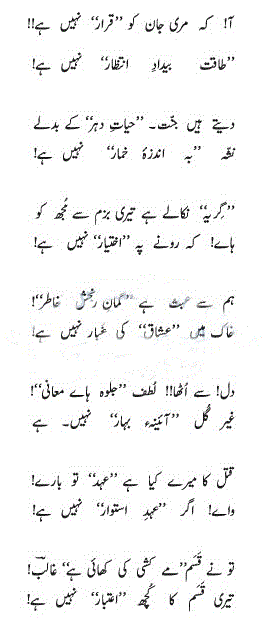 آ! کہ مری جان کو ”قرار“ نہیں ہے!!
”طاقت بیدادِ انتظار“ نہیں ہے!
دیتے ہیں جنّت۔ ”حیاتِ دہر“ کے بدلے
نشّہ ”بہ اندزۂ خمار“ نہیں ہے!
”گِریہ“ نکالے ہے تیری بزم سے مُجھ کو
ہاے! کہ رونے پہ ”اختیار“ نہیں ہے!
ہم سے عبث ہے ”گمانِ رنجشِ خاطر“!
خاک میں ”عشاق“ کی غبار نہیں ہے!
دل! سے اُٹھا!! لُطف ”جلوہ ہاے معانی“!
غیر گُل ”آئینہء بہار“ نہیں۔ ہے
قتل کا میرے کیا ہے ”عہد“ تو بارے!
واے! اگر ”عہدِ استوار“ نہیں ہے!
تو نے قَسَم ”مے کشی کی کھائی ہے“ غالبؔ!
تیری قَسَم کا کُچھ ”اعتبار“ نہیں ہے!